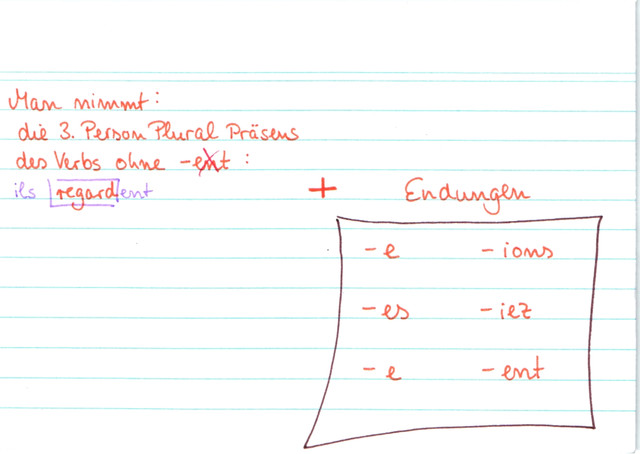 Man nimmt:
die 3. Person Plural Präsens
des Verbs ohne -ent:
ils regardent + Endungen
-e -ions
-es -iez
-e -ent